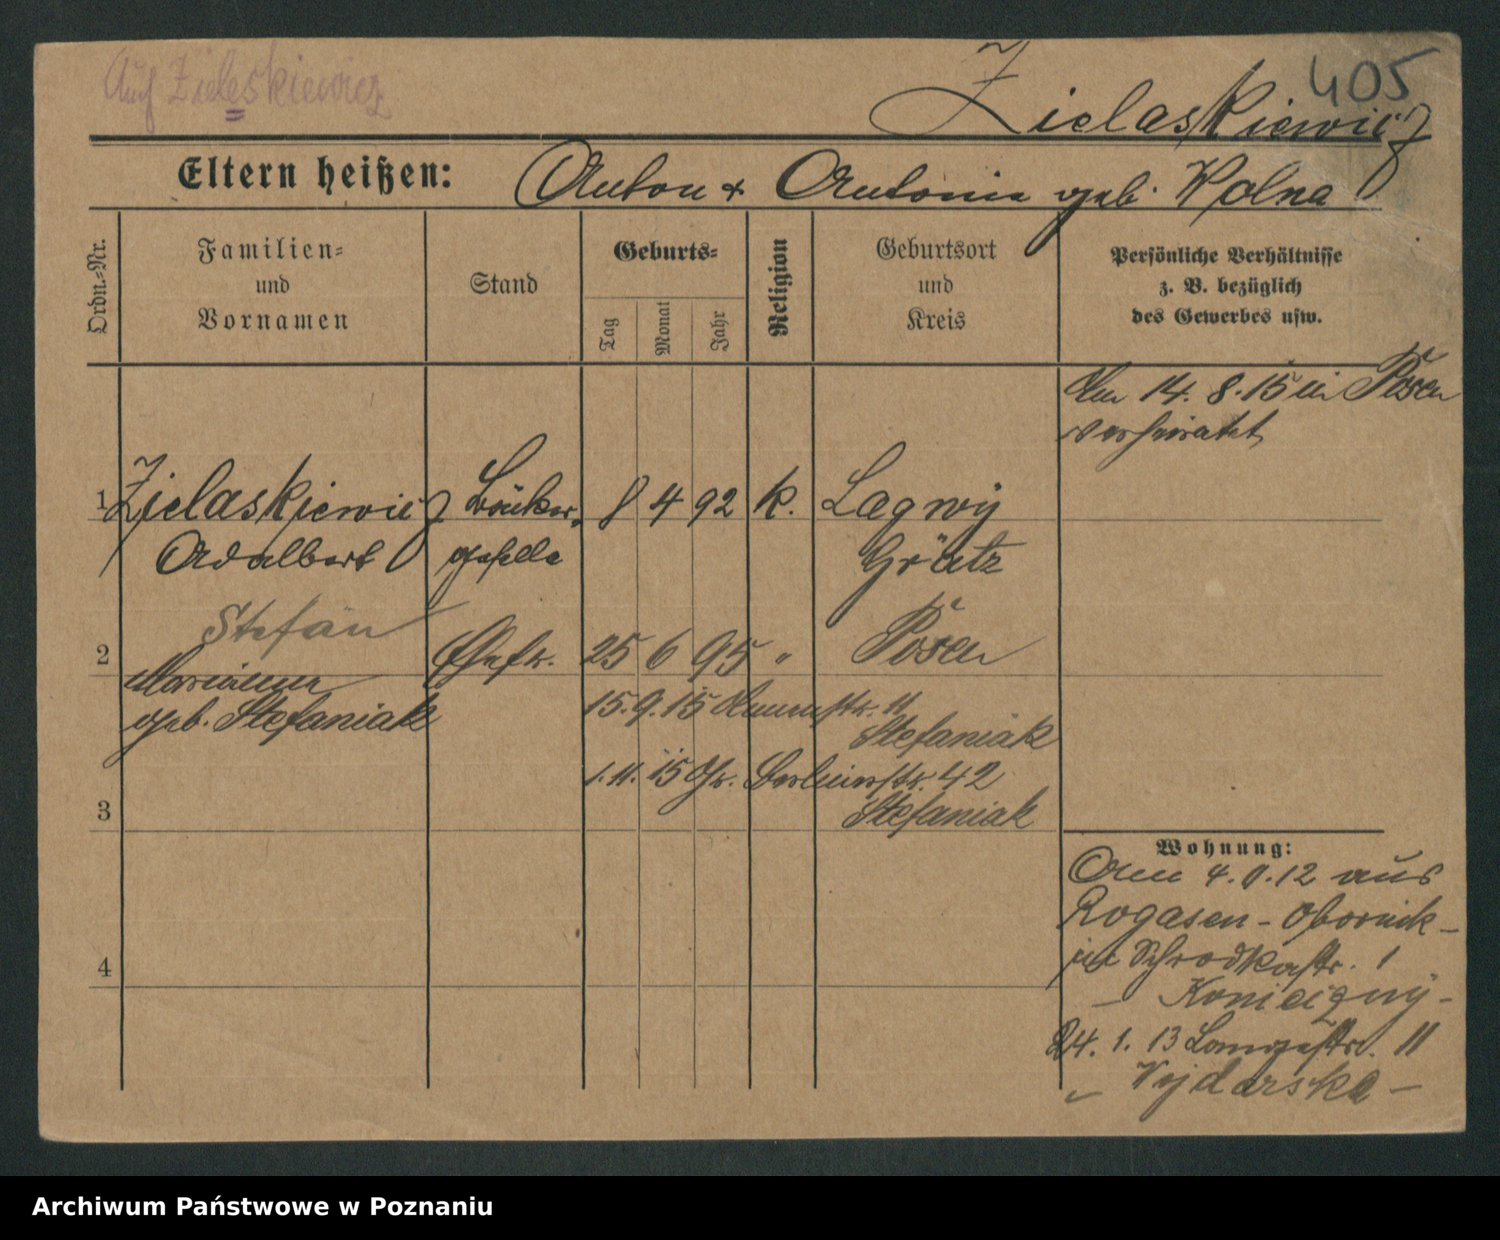 Auf Zieleskiewicz
405
Zielaskiewicz
Eltern heißen: Anton & Antonie geb. Wolna
Ordn.-Nr.
Familien-
und
Vornamen
Stand
Geburts-
Tag
Monat
Jahr
Religion
Geburtsort
und
Kreis
Persönliche Verhältnisse
z. B. bezüglich
des Gewerbes usw.
Am 14. 8. 15 in Posen
verheiratet
1 Zielaskiewicz Bäcker- 8 4 92 k. Lagwy
Adalbert geselle Grätz
Stefan
2 Ehefr. 25 6 95 " Posen
Marianna
geb. Stefaniak
15. 9. 15 11
Stefaniak
1. 11. 15 Gr. Berlinerstr. 42
Stefaniak
3
Wohnung:
Am 4. 12 aus
Rogasen - Obornik -
in Schrodkastr. 1
4
24. 1. 13 Langestr. 11